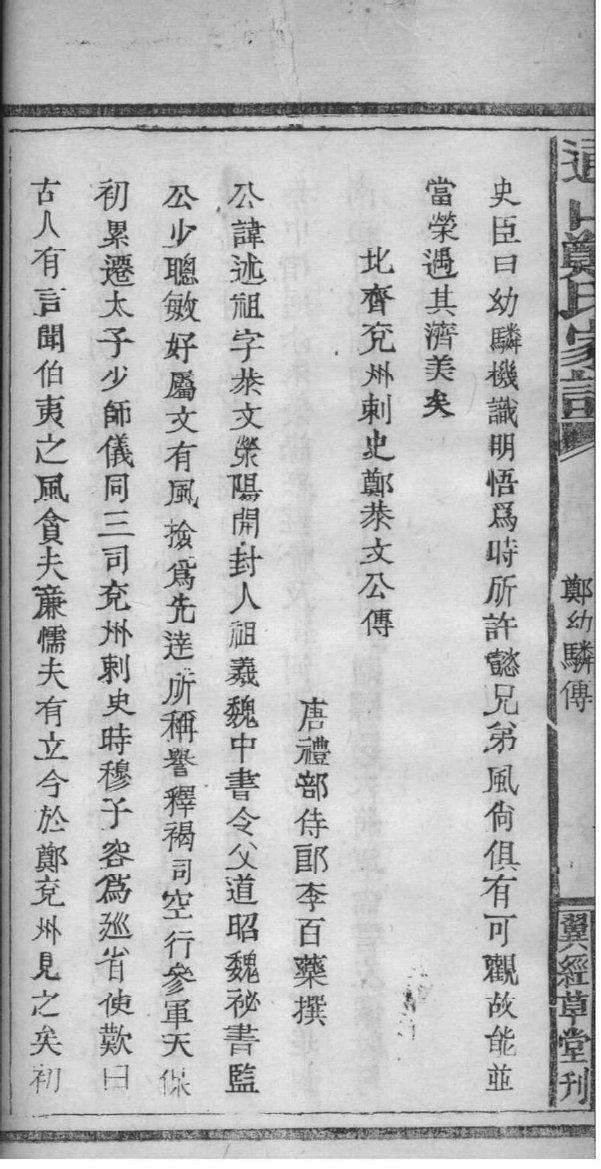 史臣曰幼驎機識明悟爲時所許懿兄弟風尚俱有可觀故能並
當榮遇其濟美矣
北齊兖州刺史鄭恭文公傳
唐禮部侍郎李百藥撰
公諱述祖字恭文滎陽開封人祖羲魏中書令父道昭魏祕書監
公少聰敏好屬文有風撿爲先達所稱譽釋褐司空行參軍天保
初累遷太子少師儀同三司兖州刺史時穆子容爲廵省使歎曰
古人有言聞伯夷之風貪夫亷懦夫有立今於鄭兖州見之矣初
鄭氏家
鄭幼驎傳
翼經草堂刊